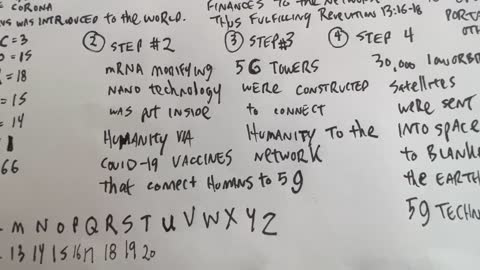 = CORONA
WAS INTRODUCED TO THE WORLD.
C = 3
= 15
= 18
= 15
= 14
1
66
② STEP #2
mRNA MODIFYING
NANO TECHNOLOGY
WAS PUT INSIDE
HUMANITY VIA
COVID-19 VACCINES
that CONNECT HUMANS to 5g
FINANCES TO THE
Thus FULFILLING 13:16-18
③ STEP #3
5G TOWERS
WERE CONSTRUCTED
to CONNECT
HUMANITY TO the
NETWORK
④ STEP 4
30,000
Satellites
WERE SENT
INTO SPACE
to
the EARTH
5g
M N O P Q R S T U V W X Y Z
13 14 15 16 17 18 19 20